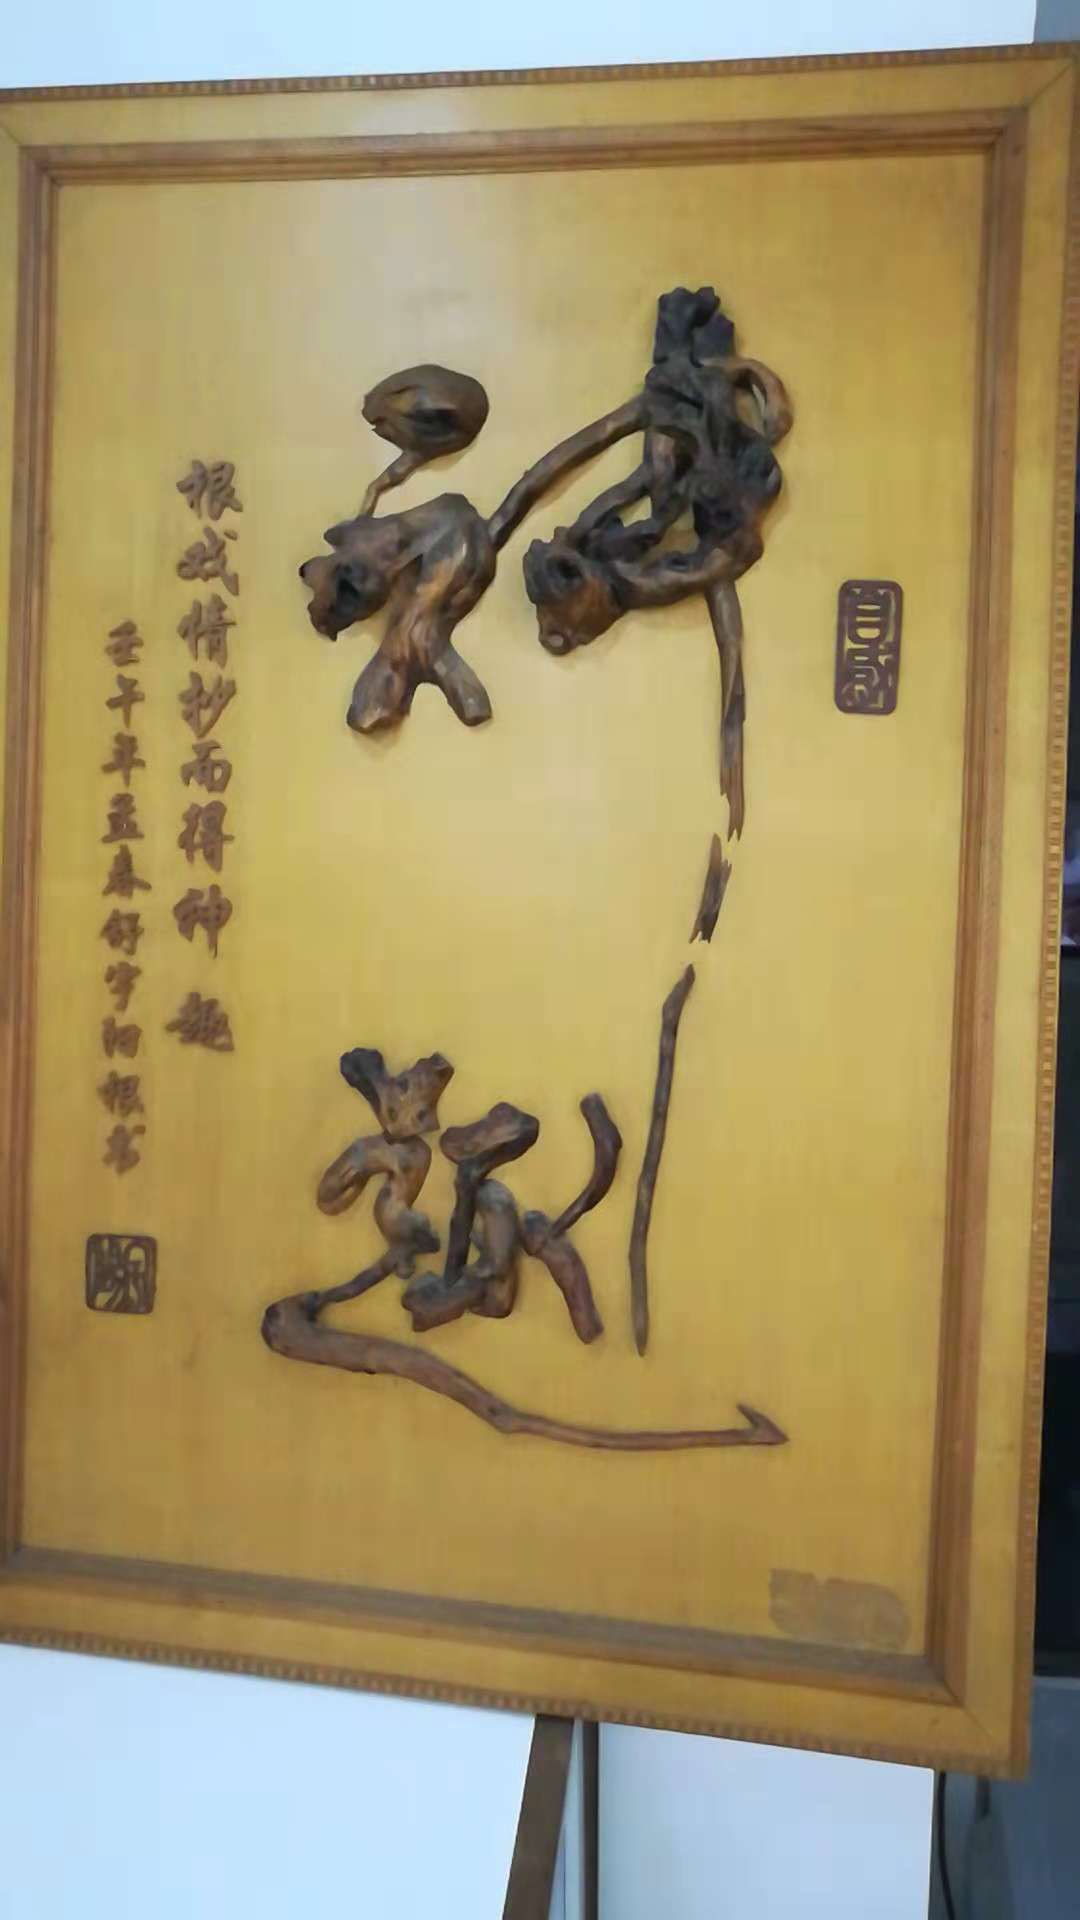 神趣
根戏情抄而得神趣
壬午年孟春舒宇阳根书